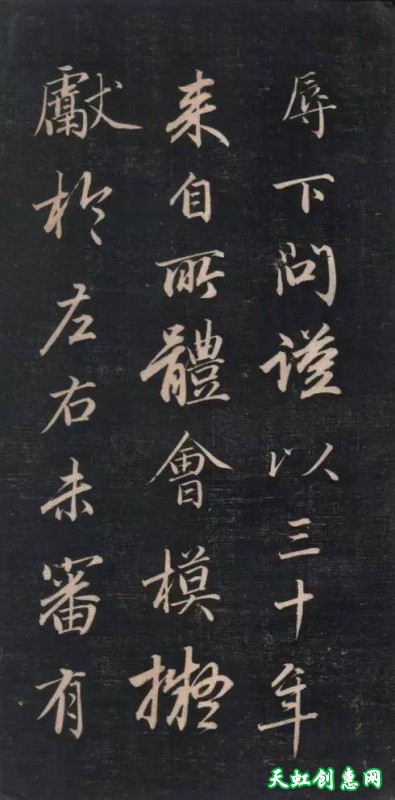 辱下问谨以三十年
来自所體會模擬
獻於左右未審有
天虹创惠网